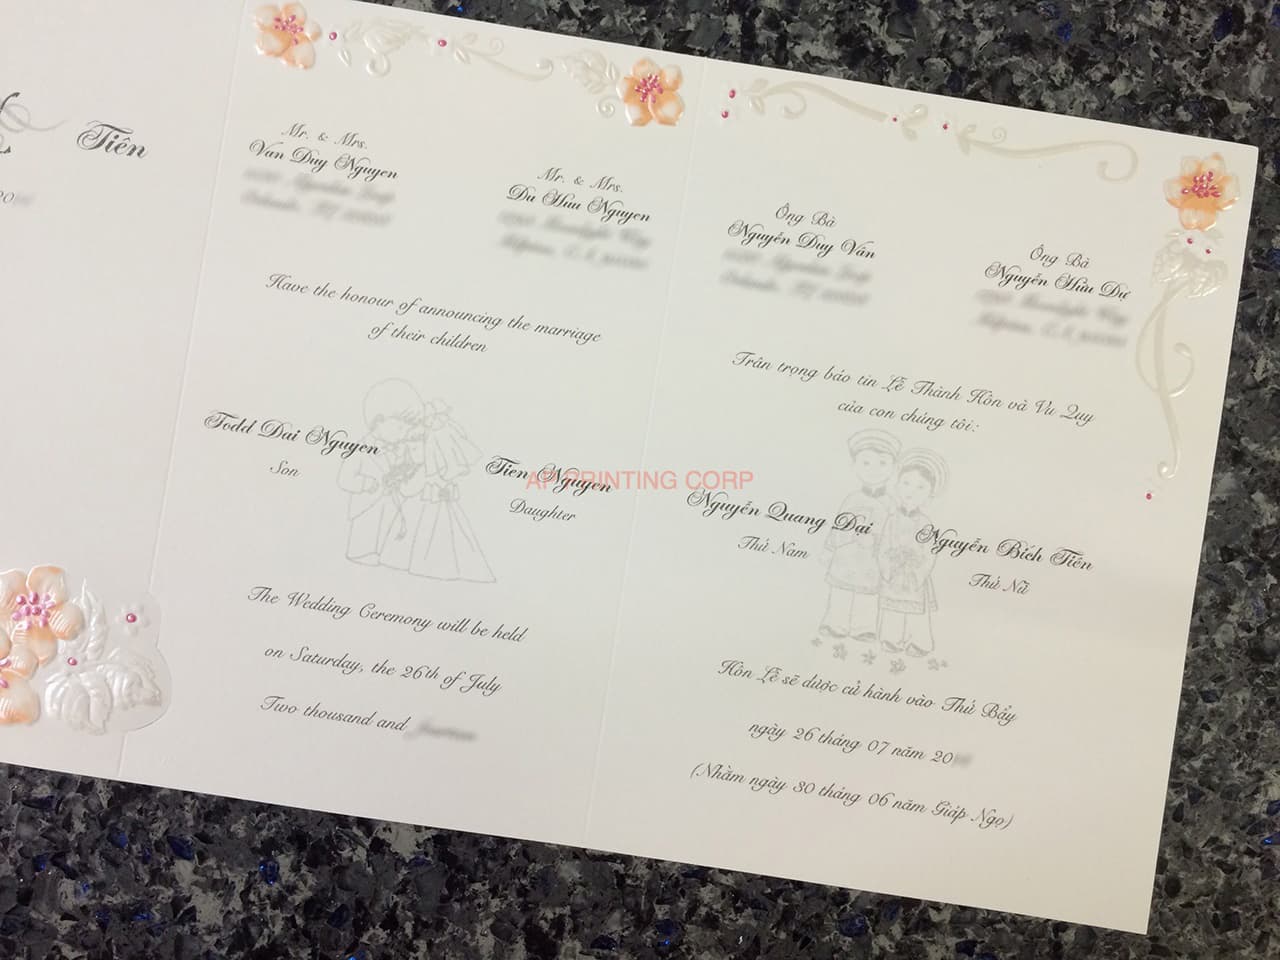 Tiên
20
Mr. & Mrs.
Van Duy Nguyen
Mr. & Mrs.
Du Huu Nguyen
Have the honour of announcing the marriage
of their children
Todd Dai Nguyen
Son
Tien Nguyen
Daughter
The Wedding Ceremony will be held
on Saturday, the 26th of July
Two thousand and
Ông Bà
Nguyễn Duy Vân
Ông Bà
Nguyễn Hữu Dự
Trân trọng báo tin Lễ Thành Hôn và Vu Quy
của con chúng tôi:
Nguyễn Quang Đại
Thứ Nam
Nguyễn Bích Tiên
Thứ Nữ
Hôn Lễ sẽ được cử hành vào Thứ Bẩy
ngày 26 tháng 07 năm 20
(Nhằm ngày 30 tháng 06 năm Giáp Ngọ)
AP PRINTING CORP